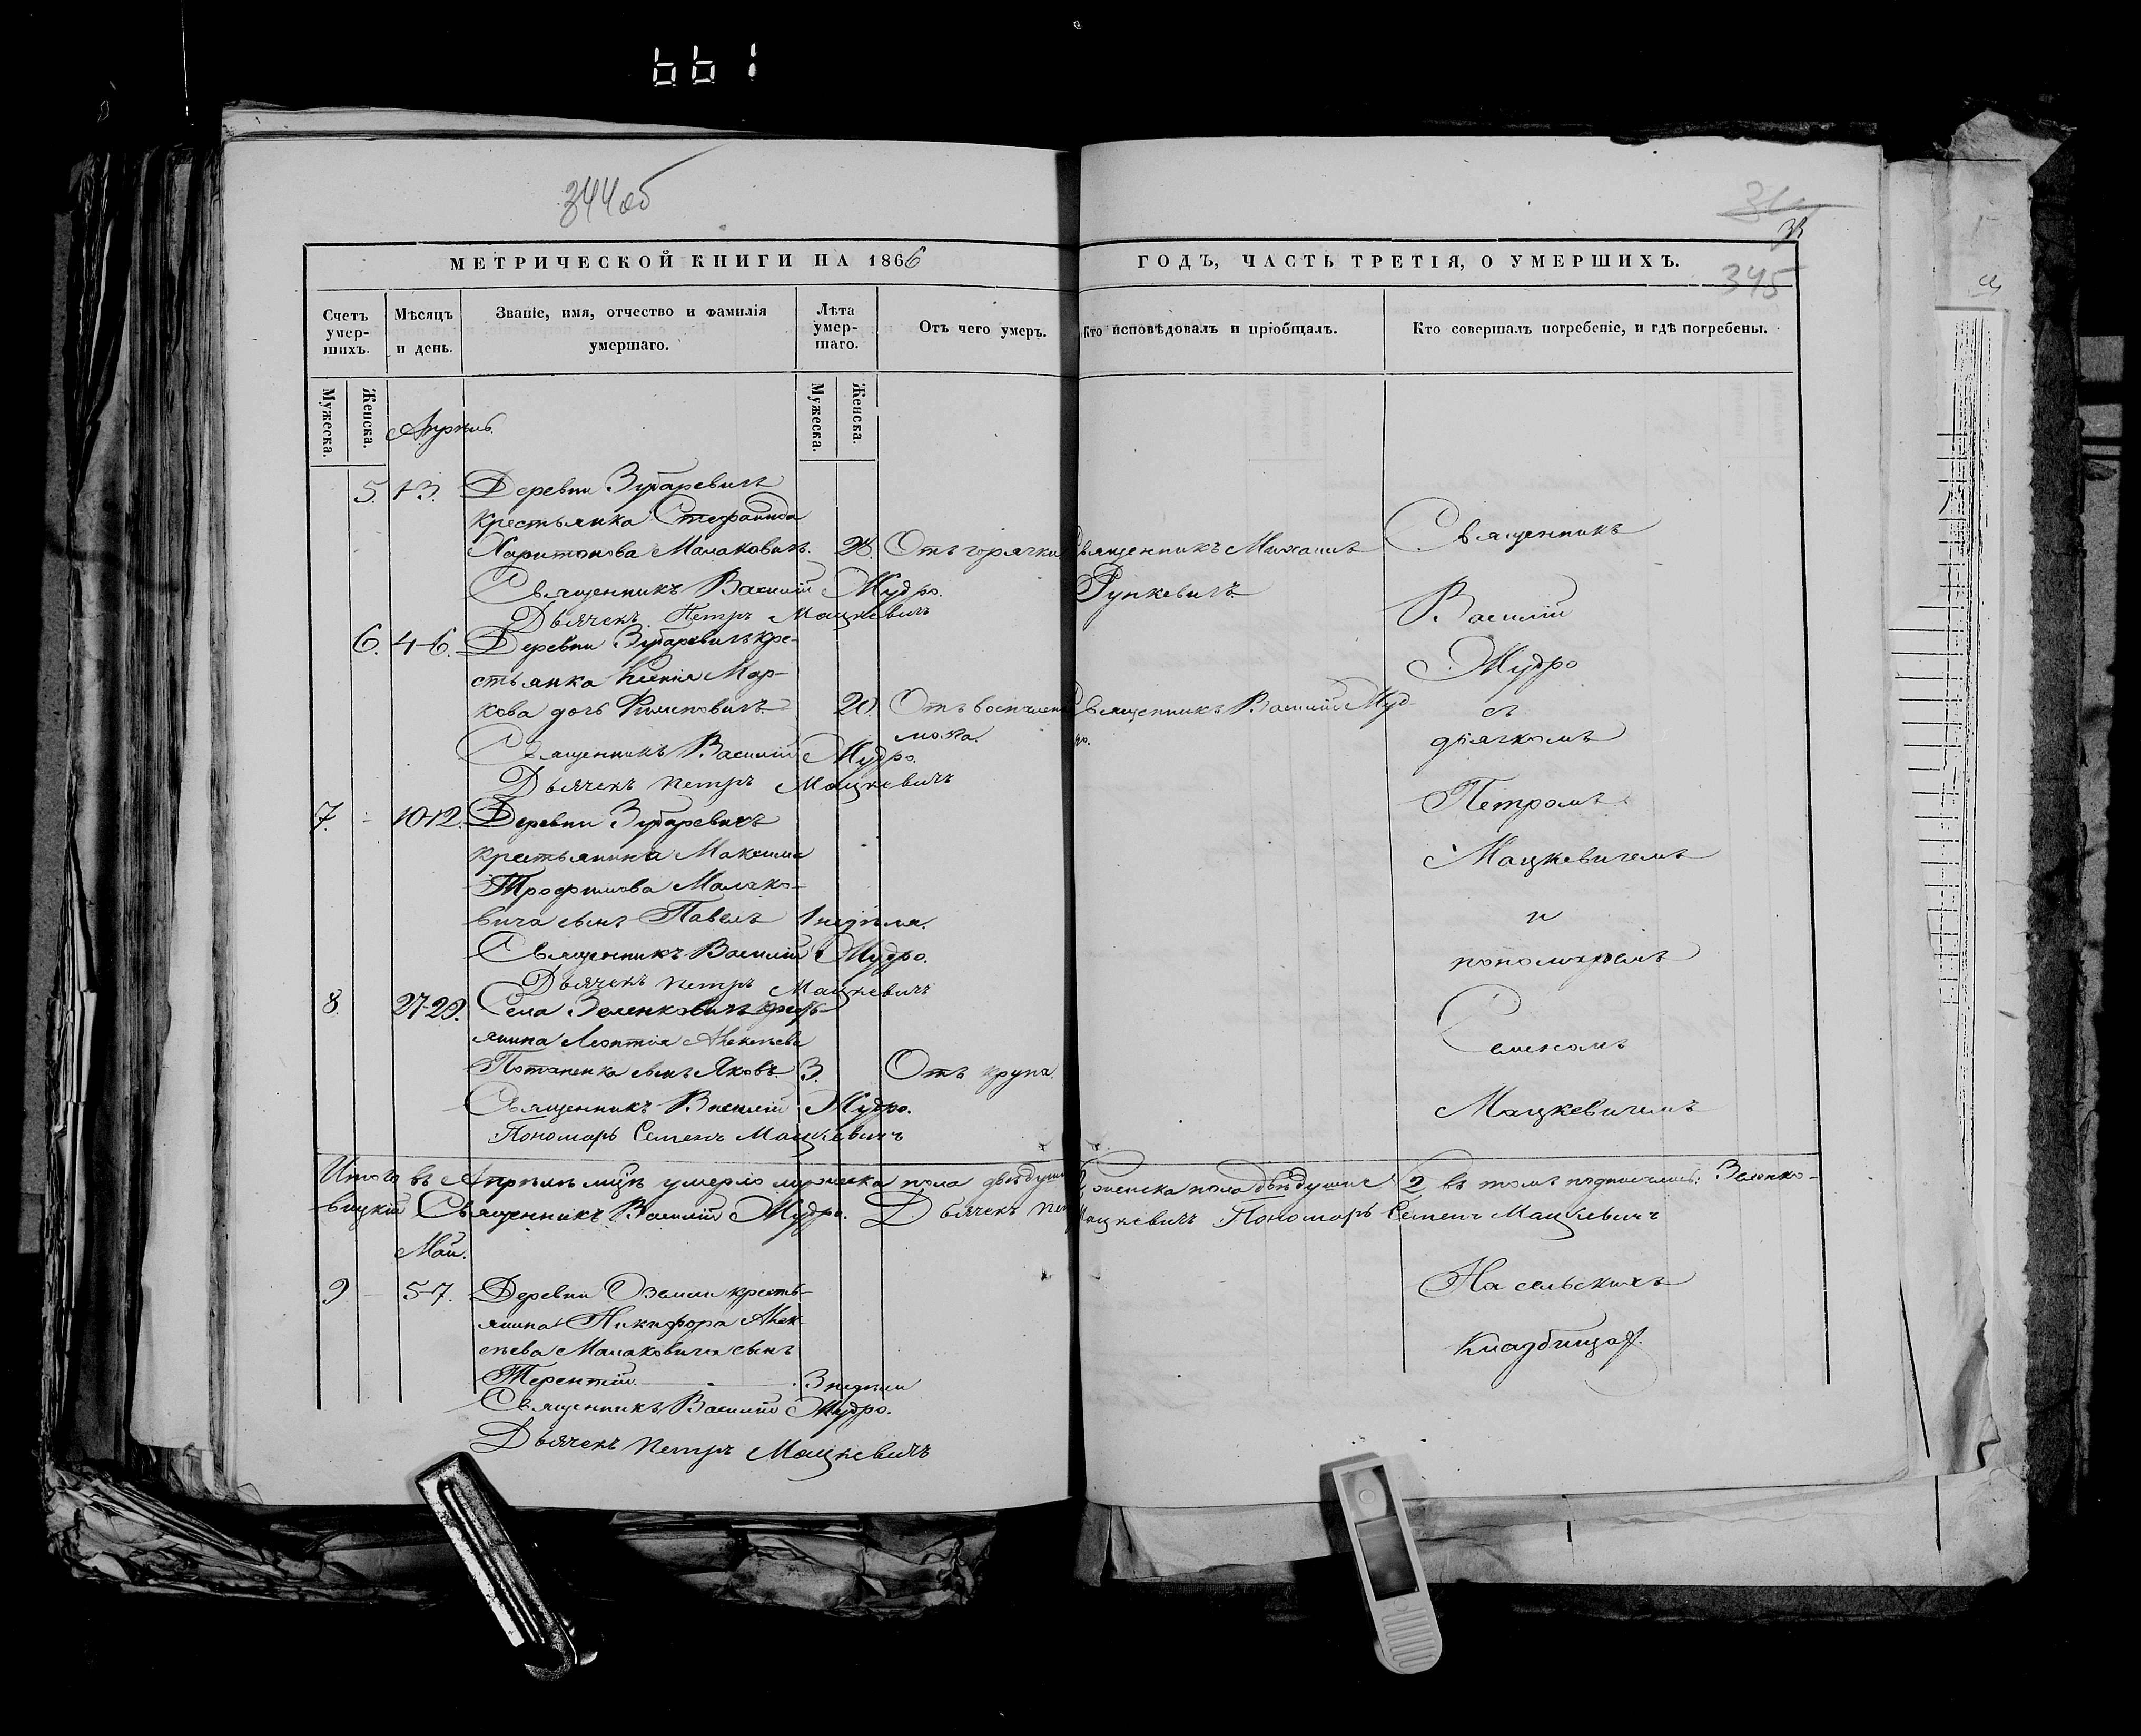 661
344об
345
МЕТРИЧЕСКОЙ КНИГИ НА 1866
ГОДЪ, ЧАСТЬ ТРЕТІЯ, О УМЕРШИХЪ.
Счетъ умер-шихъ.
Мѣсяцъ и день.
Званіе, имя, отчество и фамилія умершаго.
Лѣта умер-шаго.
Отъ чего умеръ.
Кто исповѣдовалъ и пріобщалъ.
Кто совершалъ погребеніе, и гдѣ погребены.
Мужеска.
Женска.
Мужеска.
Женска.
Апрѣль.
5. 1-3. Деревни Зубаревичъ
крестьянка Стефанида
Харитонова Малаковичъ. 28. Отъ горячки Священникъ Михаилъ
Священникъ Василій Мудро. Рункевичъ.
Дьячекъ Петръ Мацкевичъ
6. 4-6. Деревни Зубаревичъ кре-
стьянка Ксенія Мар-
кова дочь Филиповичъ. 20. Отъ воспалені Священникъ Василій Муд-
мозга. ро.
Священникъ Василій Мудро.
Дьячекъ Петръ Мацкевичъ
7. 10-12. Деревни Зубаревичъ
крестьянина Максима
Трофимова Малако-
вича сынъ Павелъ 1 недѣля.
Священникъ Василій Мудро.
Дьячекъ Петръ Мацкевичъ
8. 27-29. Села Зеленковичъ кресть-
янина Леонтія Алексѣева
Потапенка сынъ Яковъ. 3. Отъ крупа.
Священникъ Василій Мудро.
Пономарь Семенъ Мацкевичъ
Священникъ
Василій
Мудро
съ
дьячкомъ
Петромъ
Мацкевичемъ
и
пономаремъ
Семеномъ
Мацкевичемъ
Итого въ Апрѣлѣ мцѣ умерло мужеска пола двѣ души 2, женска пола двѣ души 2 въ томъ подписались: Зеленко-
вицкій Священникъ Василій Мудро. Дьячекъ Петръ Мацкевичъ Пономарь Семенъ Мацкевичъ
Май.
9 5-7. Деревни Оземли кресть-
янина Никифора Алек-
сѣева Малаковича сынъ
Терентій. 3 недѣли
Священникъ Василій Мудро.
Дьячекъ Петръ Мацкевичъ
На сельскихъ
кладбищахъ.